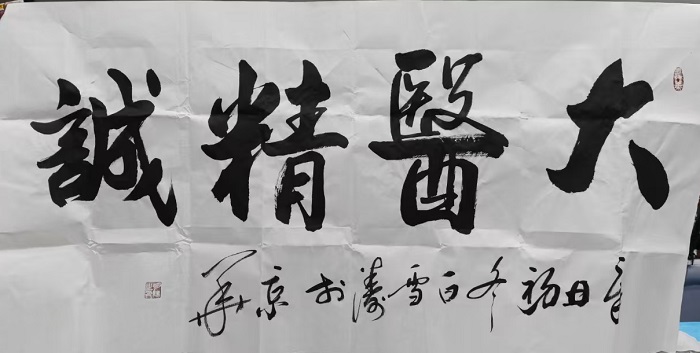 大醫精誠
辛丑初冬白雪濤於京華